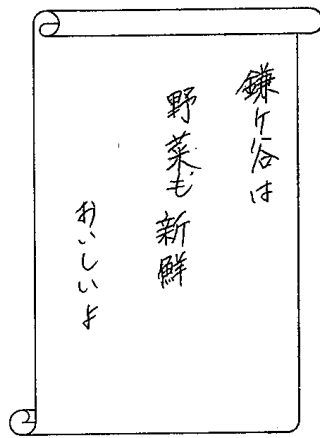 鎌ケ谷は
野菜も新鮮
おいしいよ